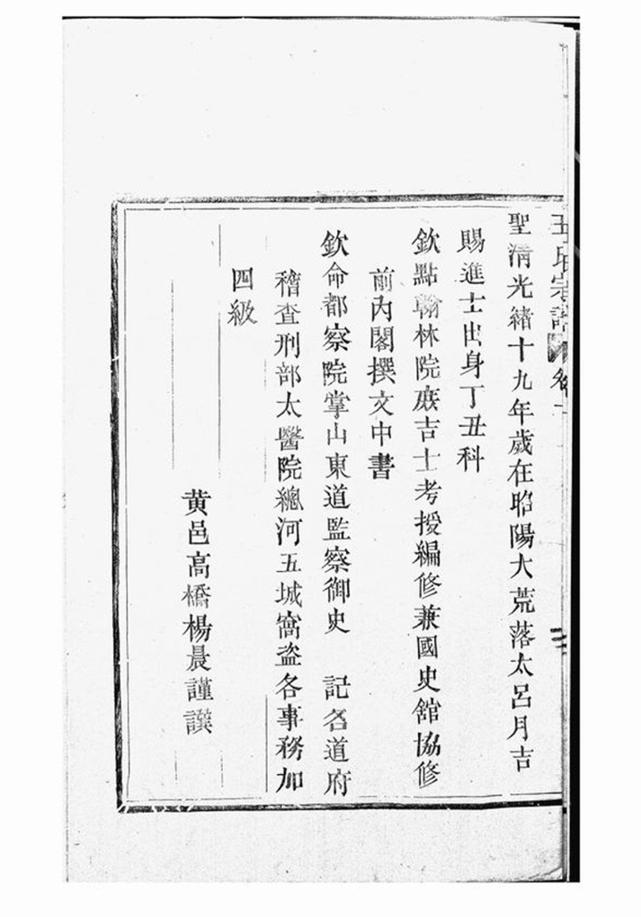 王氏宗譜 卷一
聖清光緒十九年歲在昭陽大荒落太呂月吉
賜進士出身丁丑科
欽點翰林院庶吉士考授編修兼國史舘協修
前內閣撰文中書
欽命都察院掌山東道監察御史 記名道府
稽查刑部太醫院總河五城窩盜各事務加
四級
黃邑高橋楊晨謹譔